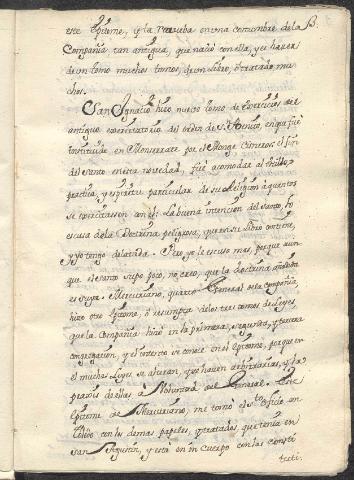 este Epitome, y la prueba en una costumbre de la
Compañia tan antigua, que naciò con ella, y es hacer
de un tomo muchos tomos, de un libro, ò tratado mu-
chos.
San Ignacio hizo nuevo tomo de Exercicios del
antiguo exercitatorio del orden de S. Benito, en que fuè
instituido en Monserrate por el Monge Cisneros: el fin
del santo en esta novedad, fuè acomodar al estilo,
practica, y espiritu particular de su Religion à quantos
se exercitassen con el: La buena intencion del santo, lo
escusa de la Doctrina peligrosa, que en su libro contiene,
y yo tengo delatada. Pero yo le escuso mas, por que aun-
que el santo supo poco, no creo, que la doctrina
es suya. Mercuriano, quarto General de la Compañia,
hizo otro Epitome, ò resumpta de los tres tomos de leyes,
que la Compañia hizo en la primera, segunda, y tercera
congregacion, y el intento se conoce en el Epitome, porque en
el muchas leyes se alteran, y se hacen arbitrarias, y la
practica de ellas à voluntad del General. Este
Epitome de Mercuriano, me tomò el S.to Oficio en
con los demas papeles, y tratados que tenia en
San Agustin, y està en un cuerpo con las consti
tuti.